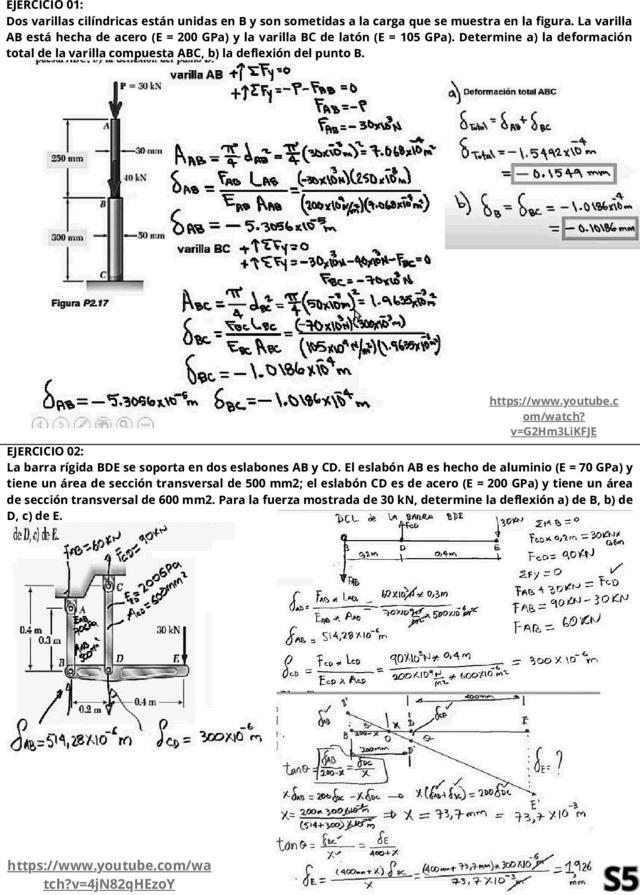 EJERCICIO 01:
Dos varillas cilíndricas están unidas en B y son sometidas a la carga que se muestra en la figura. La varilla
AB está hecha de acero (E = 200 GPa) y la varilla BC de latón (E = 105 GPa). Determine a) la deformación
total de la varilla compuesta ABC, b) la deflexión del punto B.
varilla AB +↑ΣFy=0
+↑ΣFy=-P-FAB=0
FAB=-P
FAB=-30x10³N
P = 30 kN
A
250 mm
30 mm
40 kN
B
300 mm
50 mm
C
Figura P2.17
AAB = π/4 dAB² = π/4 (30x10⁻³m)² = 7.068x10⁻⁴m²
δAB = FAB LAB / EAB AAB = (-30x10³N)(250x10⁻³m) / (200x10⁹N/m²)(7.068x10⁻⁴m²)
δAB = -5.3056x10⁻⁵m
varilla BC +↑ΣFy=0
+↑ΣFy=-30x10³N-40x10³N-FBC=0
FBC=-70x10³N
ABC = π/4 dBC² = π/4 (50x10⁻³m)² = 1.9635x10⁻³m²
δBC = FBC LBC / EBC ABC = (-70x10³N)(300x10⁻³m) / (105x10⁹N/m²)(1.9635x10⁻³m²)
δBC = -1.0186x10⁻⁴m
δAB = -5.3056x10⁻⁵m δBC = -1.0186x10⁻⁴m
a) Deformación total ABC
δTotal = δAB + δBC
δTotal = -1.5492x10⁻⁴m
= -0.1549 mm
b) δB = δBC = -1.0186x10⁻⁴m
= -0.10186 mm
https://www.youtube.c
om/watch?
v=G2Hm3LiKFJE
EJERCICIO 02:
La barra rígida BDE se soporta en dos eslabones AB y CD. El eslabón AB es hecho de aluminio (E = 70 GPa) y
tiene un área de sección transversal de 500 mm2; el eslabón CD es de acero (E = 200 GPa) y tiene un área
de sección transversal de 600 mm2. Para la fuerza mostrada de 30 kN, determine la deflexión a) de B, b) de
D, c) de E.
de D, c) de E.
FAB=60KN
FCD=90KN
C
E=200GPa
ACD=600mm²
A
0.4 m
0.3 m
30 kN
B
D
E
0.2 m
0.4 m
δAB=514,28x10⁻⁶m δCD=300x10⁻⁶m
DCL de la BARRA BDE
FCD
30KN
B
D
E
0,2m
0,4m
FAB
ΣMB=0
FCD x 0,2m = 30KN x 0,6m
FCD = 90KN
ΣFy=0
FAB + 30KN = FCD
FAB = 90KN - 30KN
FAB = 60KN
δAB = 60x10³N x 0,3m
δAB = 514,28x10⁻⁶m
δCD = FCD x LCD / ECD x ACD = 90x10³N x 0,4m / 200x10⁹ N/m² x 600x10⁻⁶m² = 300x10⁻⁶m
400mm
200mm
E
E'
δE = ?
tanθ = δAB / 200-x = δDC / x
xδAB = 200δDC - xδDC → x(δAB+δDC) = 200δDC
x = 200m 300x10⁻⁶ / (514+300)x10⁻⁶m ⇒ x = 73,7mm = 73,7x10⁻³m
tanθ = δDC / x = δE / 400+x
δE = (400mm+x)δDC / x = (400mm+73,7mm)x300x10⁻⁶ / 73,7x10⁻³ = 1,926 mm
https://www.youtube.com/wa
tch?v=4jN82qHEzoY
S5